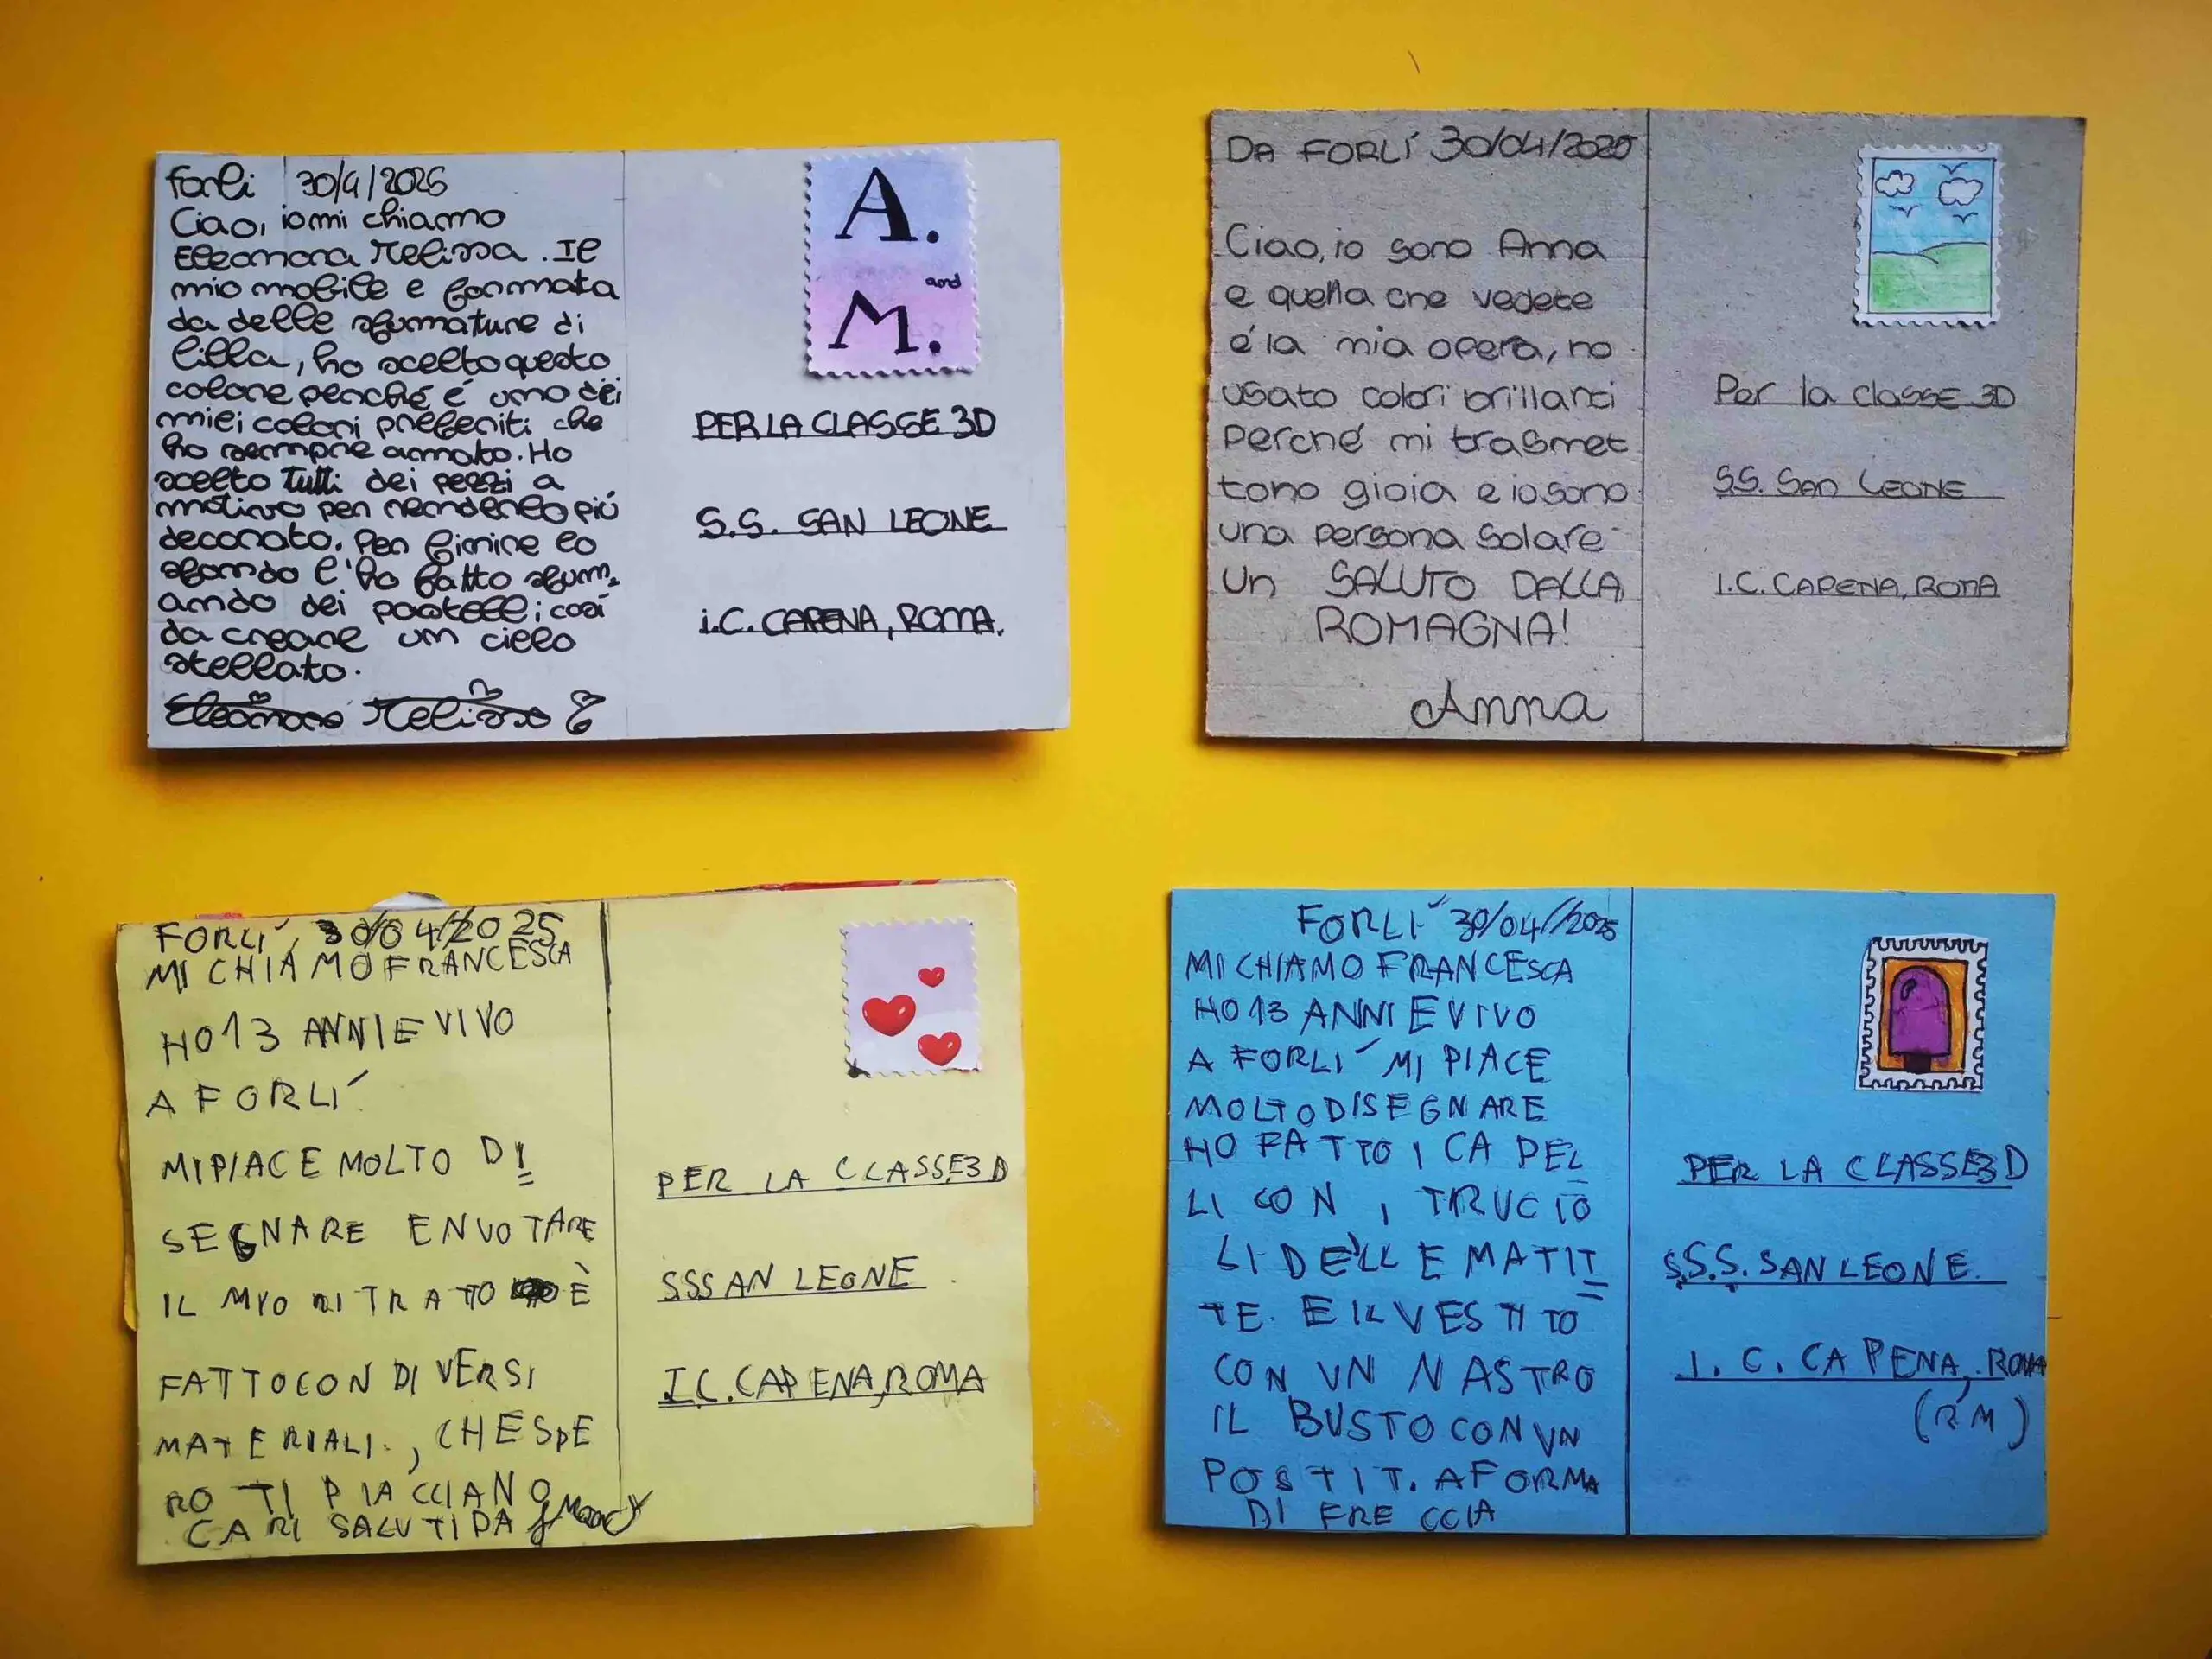 Forlì 30/4/2025
Ciao, io mi chiamo
Eleonora Melissa. Il
mio mobile e formata
da delle sfumature di
lilla, ho scelto questo
colore perché é uno dei
miei colori preferiti che
ho sempre amato. Ho
scelto tutti dei pezzi a
motivo per renderlo più
decorato. Per finire lo
sfondo l'ho fatto sfum-
ando dei pastelli; così
da creare um cielo
stellato.
Eleonora Melissa
A.
and
M.
PER LA CLASSE 3D
S.S. SAN LEONE
i.C. CAPENA, ROMA.
DA FORLÍ 30/04/2025
Ciao, io sono Anna
e quella che vedete
é la mia opera, ho
usato colori brillanti
perché mi trasmet
tono gioia e io sono
una persona solare
Un SALUTO DALLA
ROMAGNA!
Anna
Per la classe 3D
S.S. San LEONE
I.C. CAPENA, ROMA
FORLÍ, 30/04/2025
MI CHIAMO FRANCESCA
HO 13 ANNI E VIVO
A FORLÍ
MI PIACE MOLTO DI
SEGNARE E NUOTARE
IL MIO RITRATTO È
FATTO CON DIVERSI
MATERIALI., CHE SPE
RO TI PIACCIANO
CARI SALUTI DA
PER LA CLASSE 3D
SS SAN LEONE
I.C. CAPENA, ROMA
FORLÍ 30/04/2025
MI CHIAMO FRANCESCA
HO 13 ANNI E VIVO
A FORLÍ MI PIACE
MOLTO DISEGNARE
HO FATTO I CAPEL
LI CON I TRUCIO
LI DELLE MATIT
TE. E IL VESTITO
CON UN NASTRO
IL BUSTO CON UN
POSTIT. A FORMA
DI FRECCIA
PER LA CLASSE 3D
S.S.S. SAN LEONE.
I. C. CAPENA, ROMA
(RM)